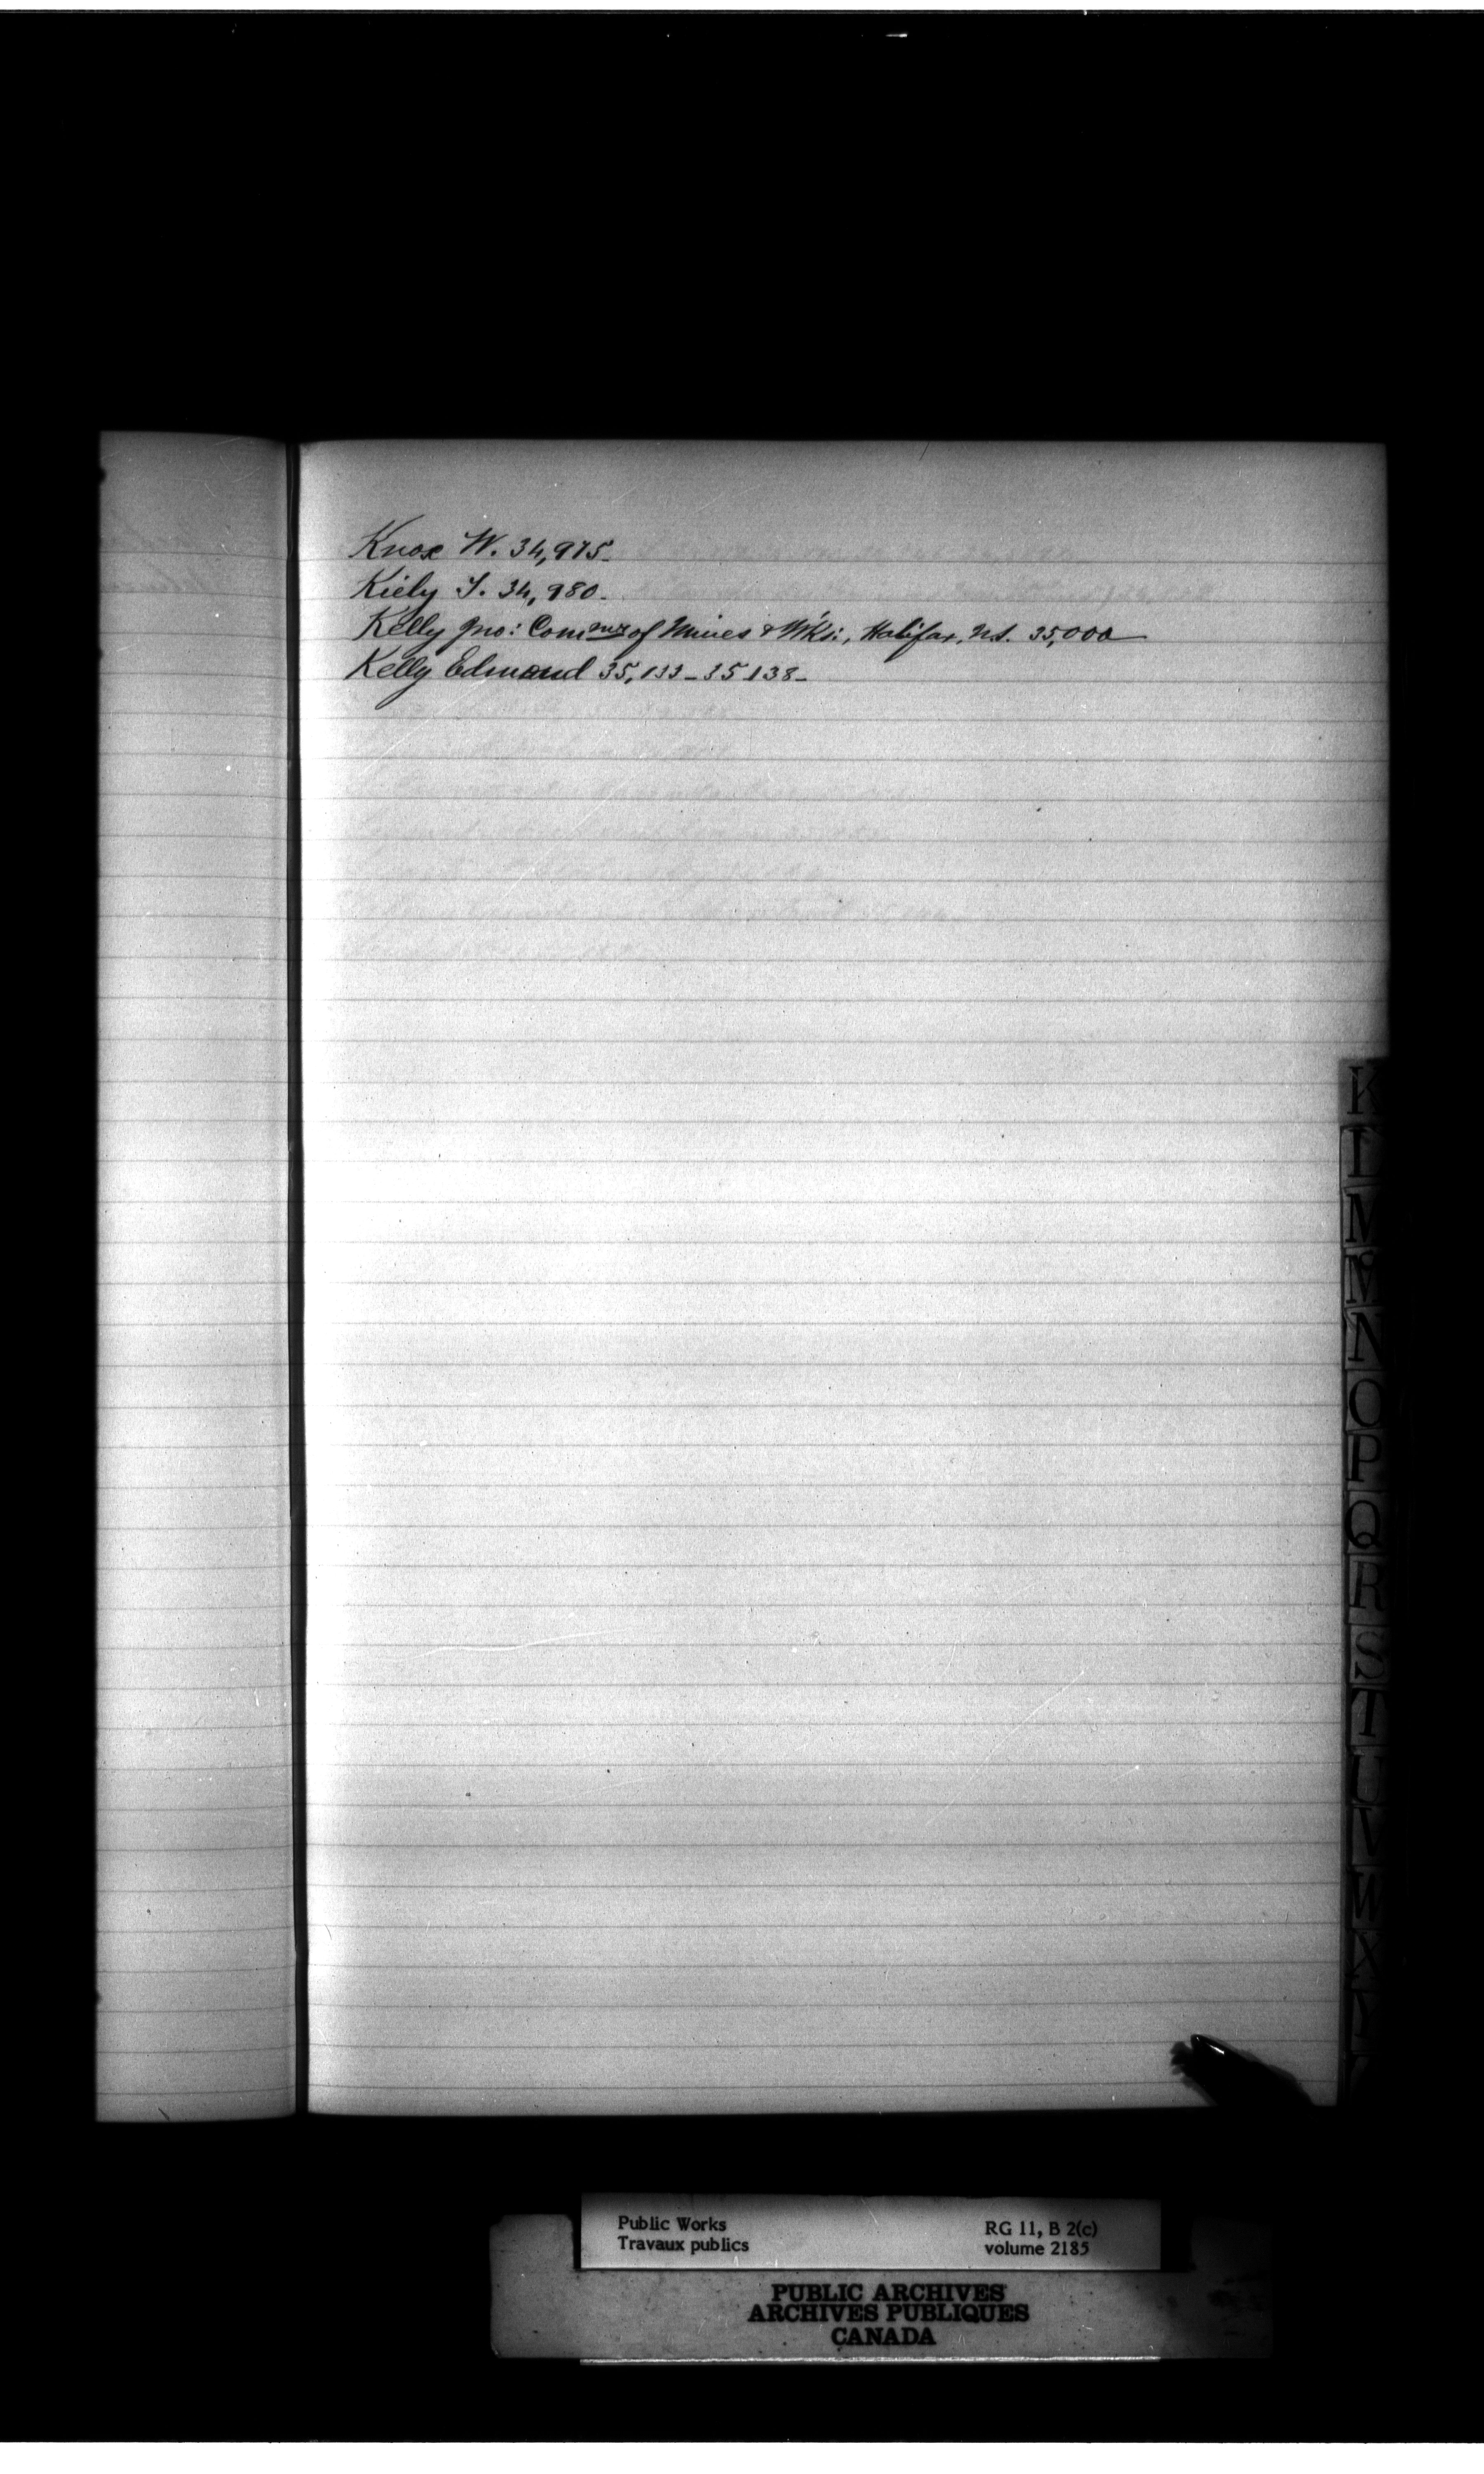 Knox W. 34,975.
Kiely T. 34,980.
Kelly Jno: Commr of Mines & W'ks:, Halifax, N.S. 35,000
Kelly Edmond 35,133 - 35138.
K
L
M
Mc
N
O
P
Q
R
S
T
U
V
W
X
Y
Public Works
Travaux publics
RG 11, B 2(c)
volume 2185
PUBLIC ARCHIVES
ARCHIVES PUBLIQUES
CANADA